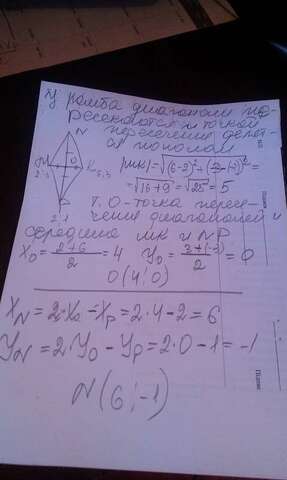 У ромба диагонали пе-
ресекаются и точкой
пересечения делят-
ся пополам
N
M
O
K 6;3
P
2;1
|MK|=√(6-2)²+
=√16+9=√25=5
Т. O-точка пересе-
чения диагоналей и
середина MK и NP
X₀=2+6/2=4 Y₀=3+(-3)/2=0
O(4;0)
X_N=2·X₀-X_P=2·4-2=6
Y_N=2·Y₀-Y_P=2·0-1=-1
N(6;-1)